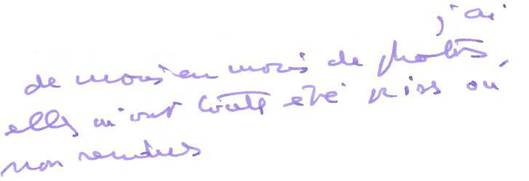 j'ai
de mois en mois de photos,
elles m'ont toutes été prises ou
non rendues